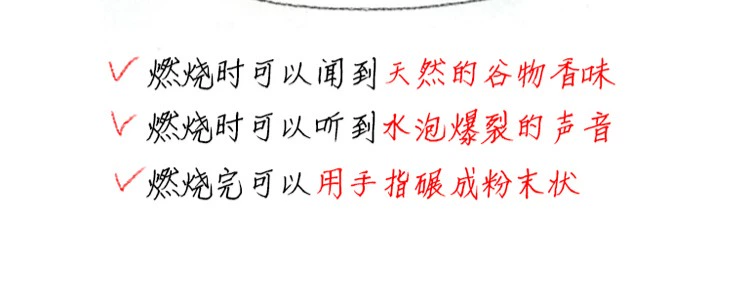 燃烧时可以闻到天然的谷物香味
燃烧时可以听到水泡爆裂的声音
燃烧完可以用手指碾成粉末状